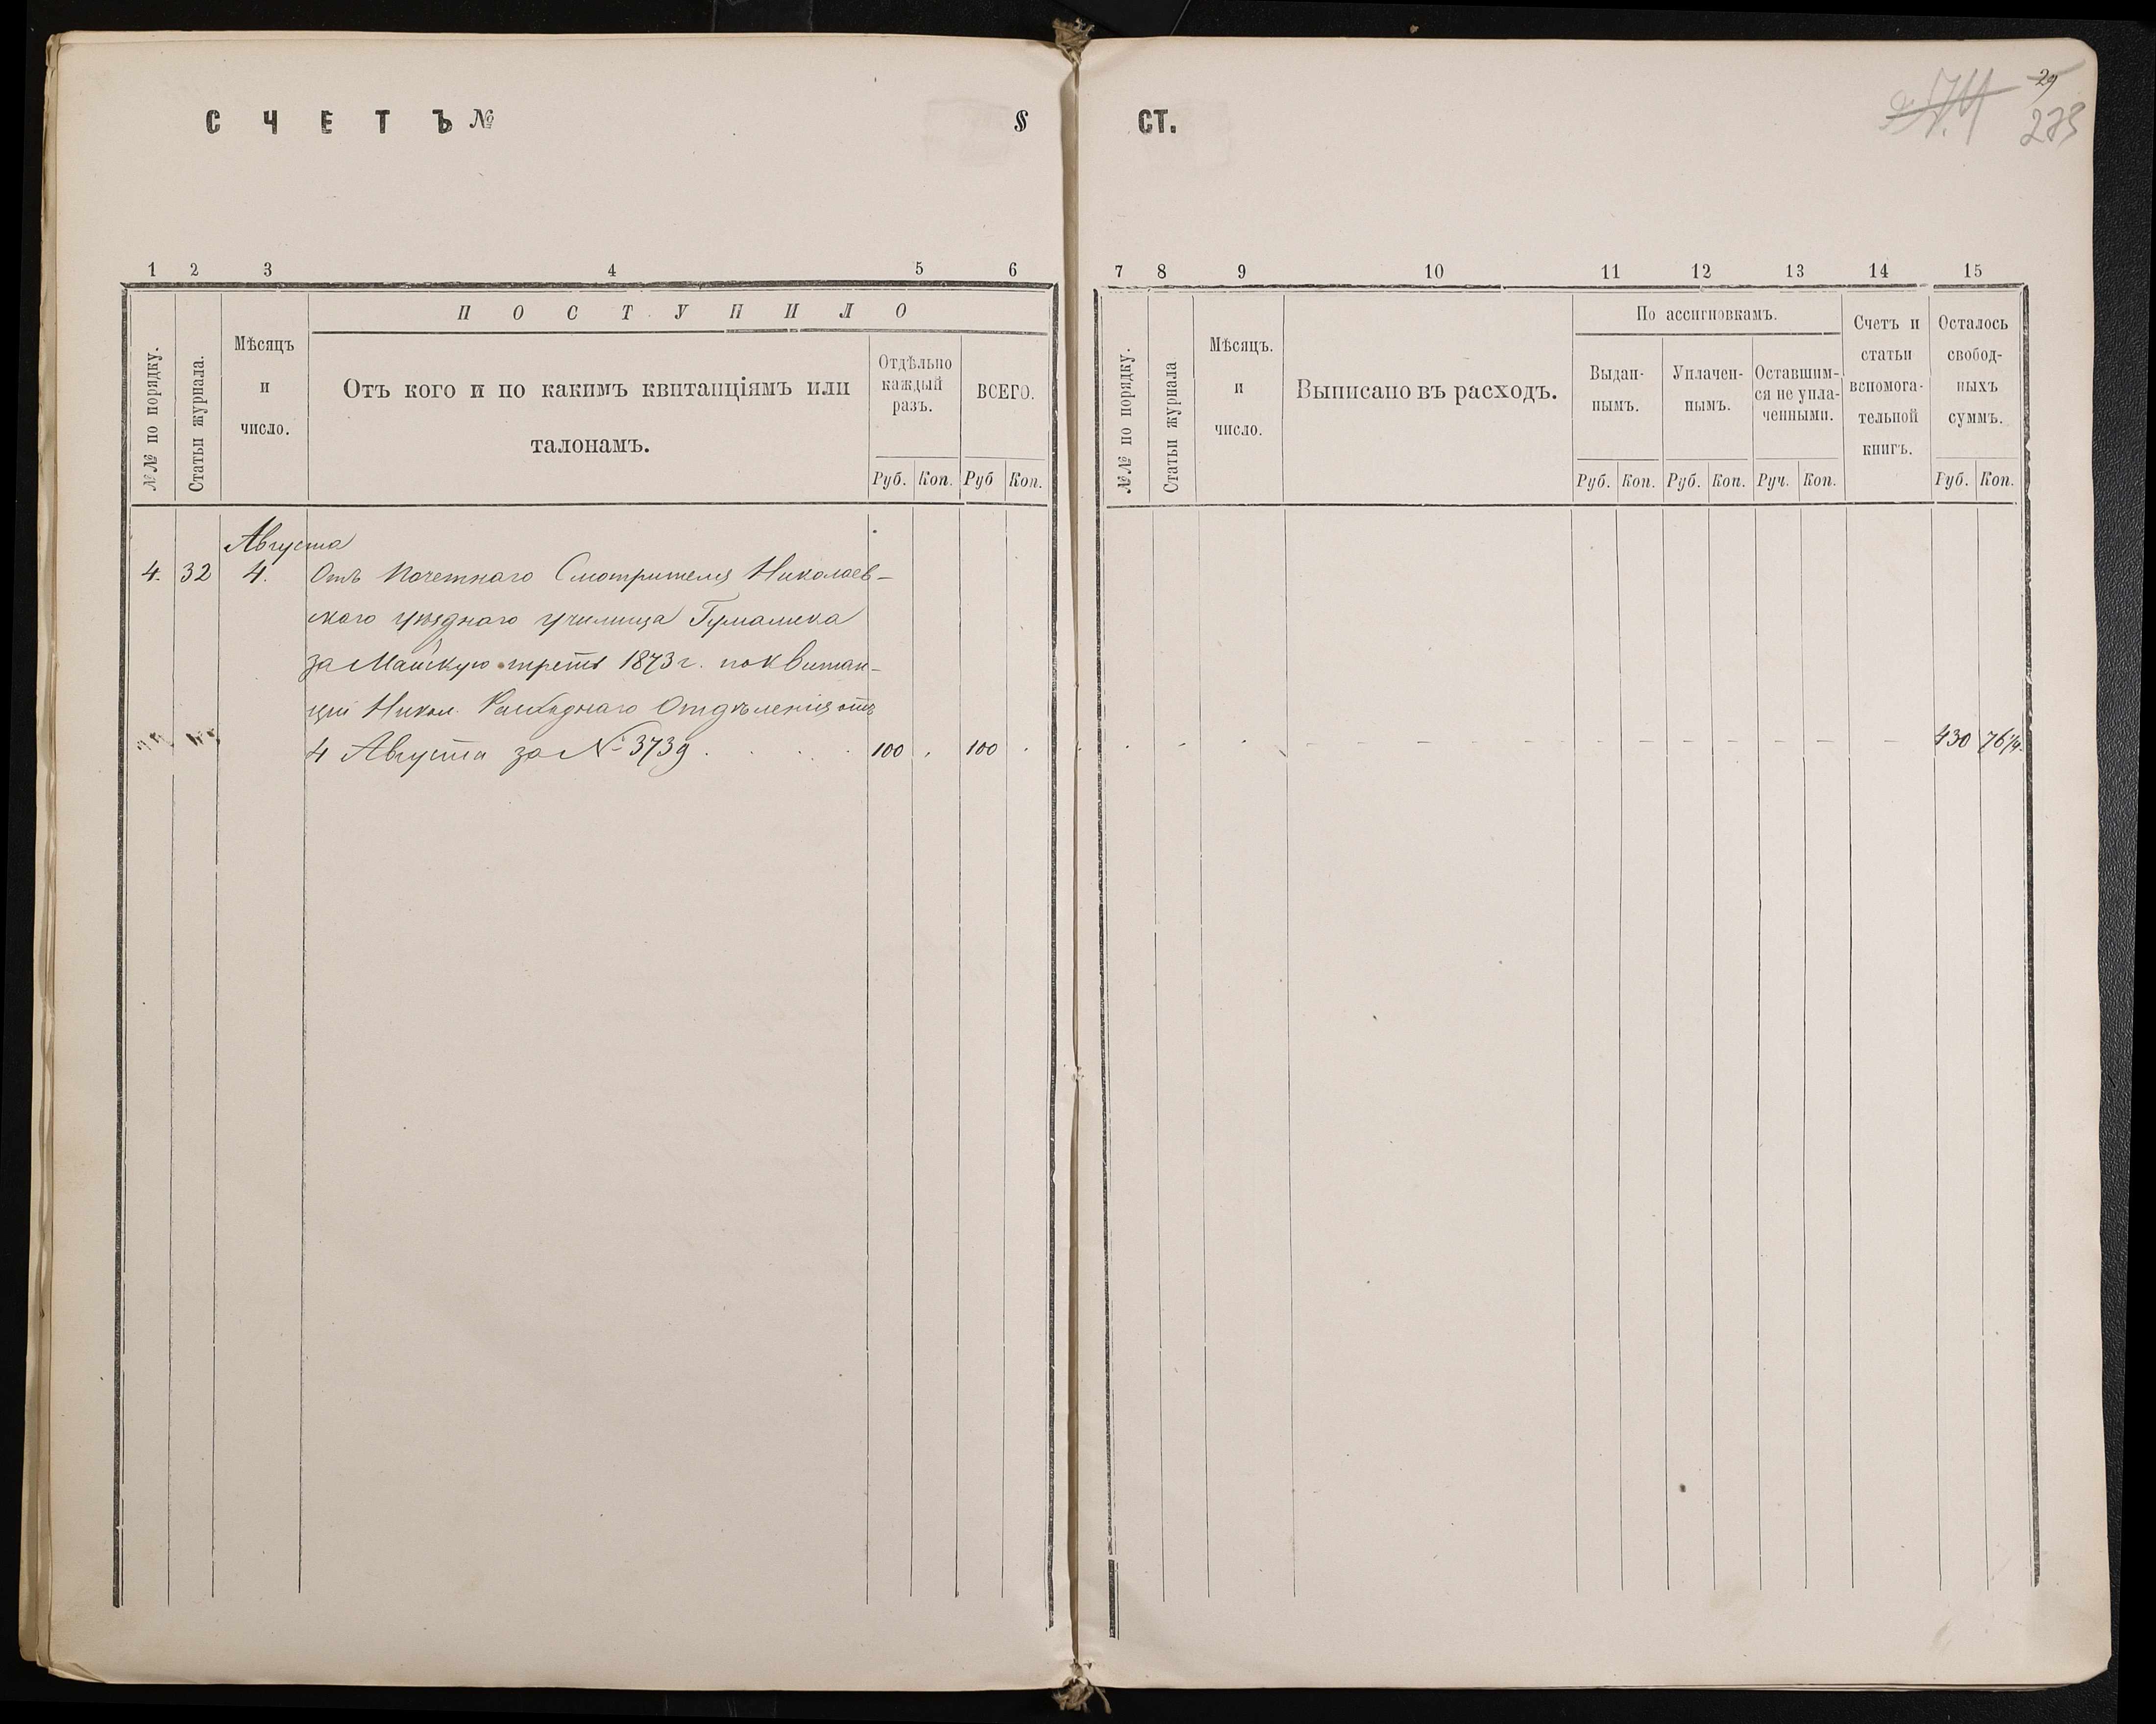 СЧЕТЪ №
§
1 2 3 4 5 6
ПОСТУПИЛО
№№ по порядку.
Статьи журнала.
Мѣсяцъ
и
число.
Отъ кого и по какимъ квитанціямъ или
талонамъ.
Отдѣльно
каждый
разъ.
ВСЕГО.
Руб. Коп. Руб Коп.
Августа
4. 32 4. Отъ Почетнаго Смотрителя Николаев-
скаго уѣзднаго училища
за Майскую треть 1873 г. по квитан-
ціи Никол. Отдѣленія отъ
4 Августа за № 3739 . . . . 100 . 100 .
29
273
СТ.
7 8 9 10 11 12 13 14 15
№№ по порядку.
Статьи журнала
Мѣсяцъ.
и
число.
Выписано въ расходъ.
По ассигновкамъ.
Выдан-
нымъ.
Уплачен-
нымъ.
Оставшим-
ся не упла-
ченными.
Счетъ и
статьи
вспомога-
тельной
книгъ.
Осталось
свобод-
ныхъ
суммъ.
Руб. Коп. Руб. Коп. Руч. Коп. Руб. Коп.
430 76 1/4.